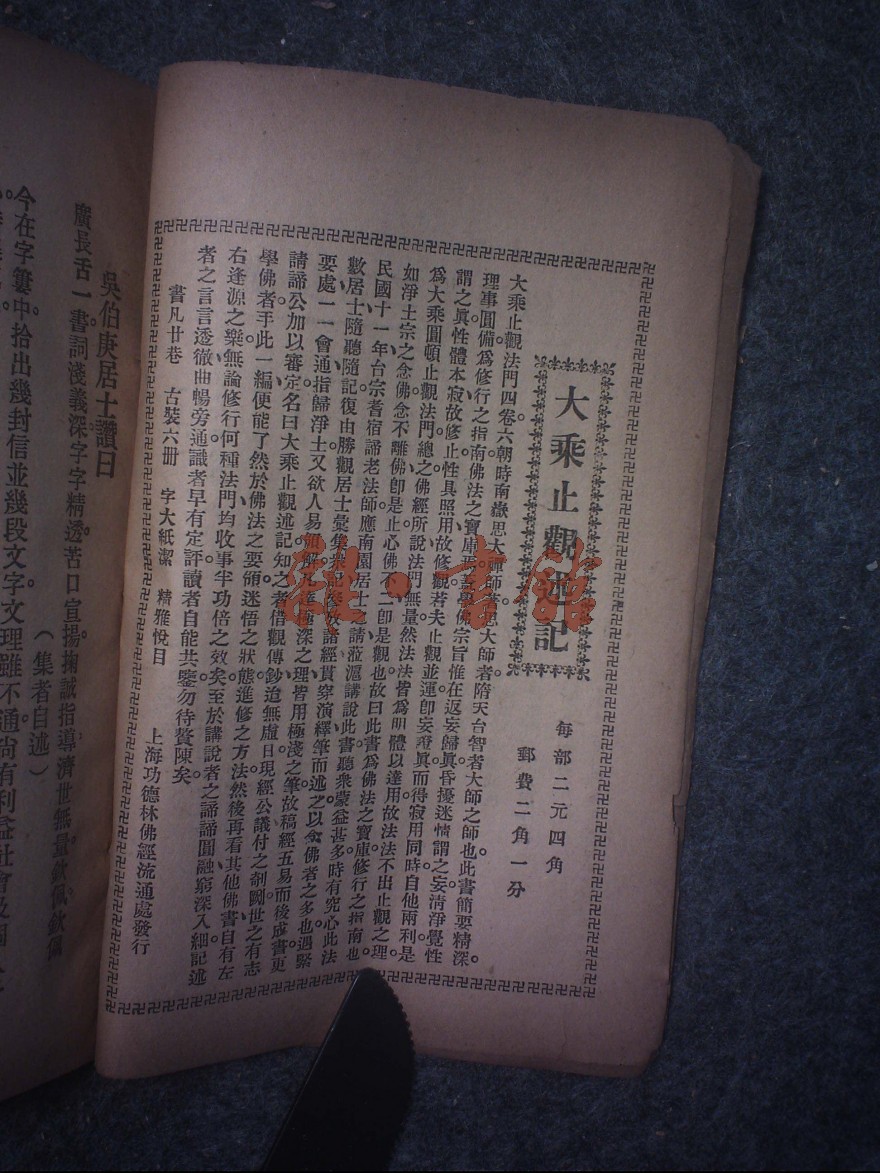 大乘止觀述記
每部二元四角
郵費二角一分
大乘止觀法門四卷六朝時南嶽思大禪師著思大師者隋天台智者大師之師也此書簡要精深。
理事圓備爲修行之指南佛法之寶庫學佛宗旨惟在返妄歸眞昏擾迷情謂之妄清淨覺性
謂之眞性體本寂故修止性具照用故修觀若夫止觀並運卽妄證眞而得寂用同時自他兩利是
爲大乘圓頓止觀法門總之佛經所說法門無量然法法皆爲明體以達用故法法不出止觀之理
如淨土宗之念佛念不離佛卽是止心佛不二卽是觀也故曰此書爲佛法之寶庫修行之指南也。
民國十一年台宗耆宿諦老法師應南園居士請蒞滬講說此書聽衆蒙益甚多時有究心此法
數居士隨聽隨記復由勝觀居士彙集衆記參攷諸經貫穿演繹筆而述之以念佛者之多也遇緊
要處一一會通指歸淨土又欲人易領解凡極深之理皆用極淺之筆故稿經五易而後成書更
請諦公加以審定名曰大乘止觀述記知之者借觀傳鈔迨無虛日現經公議付之剞劂世之有志
學佛者手此一編便能了然於佛法之要領迷悟之狀態進修之方法然後再看其他佛書自有左
右逢源之樂無論修行何種法門均收事半功倍之效矣至於講說者之諦諦圓融窮深入細記述
者之言言透徹曲暢旁通識者早有定評讀者自能共鑒勿待贅陳矣。
書凡廿卷　古裝六册　字大紙潔　精雅悅目
上海功德林佛經流通處發行
吳伯庚居士讚曰
廣長舌一書詞淺義深字字精透苦口宣揚掬誠指導濟世無量欽佩欽佩
（集者自述）
今在字簍中拾出幾封信並幾段文字文理雖不通尚有利益社會及國
報·書館